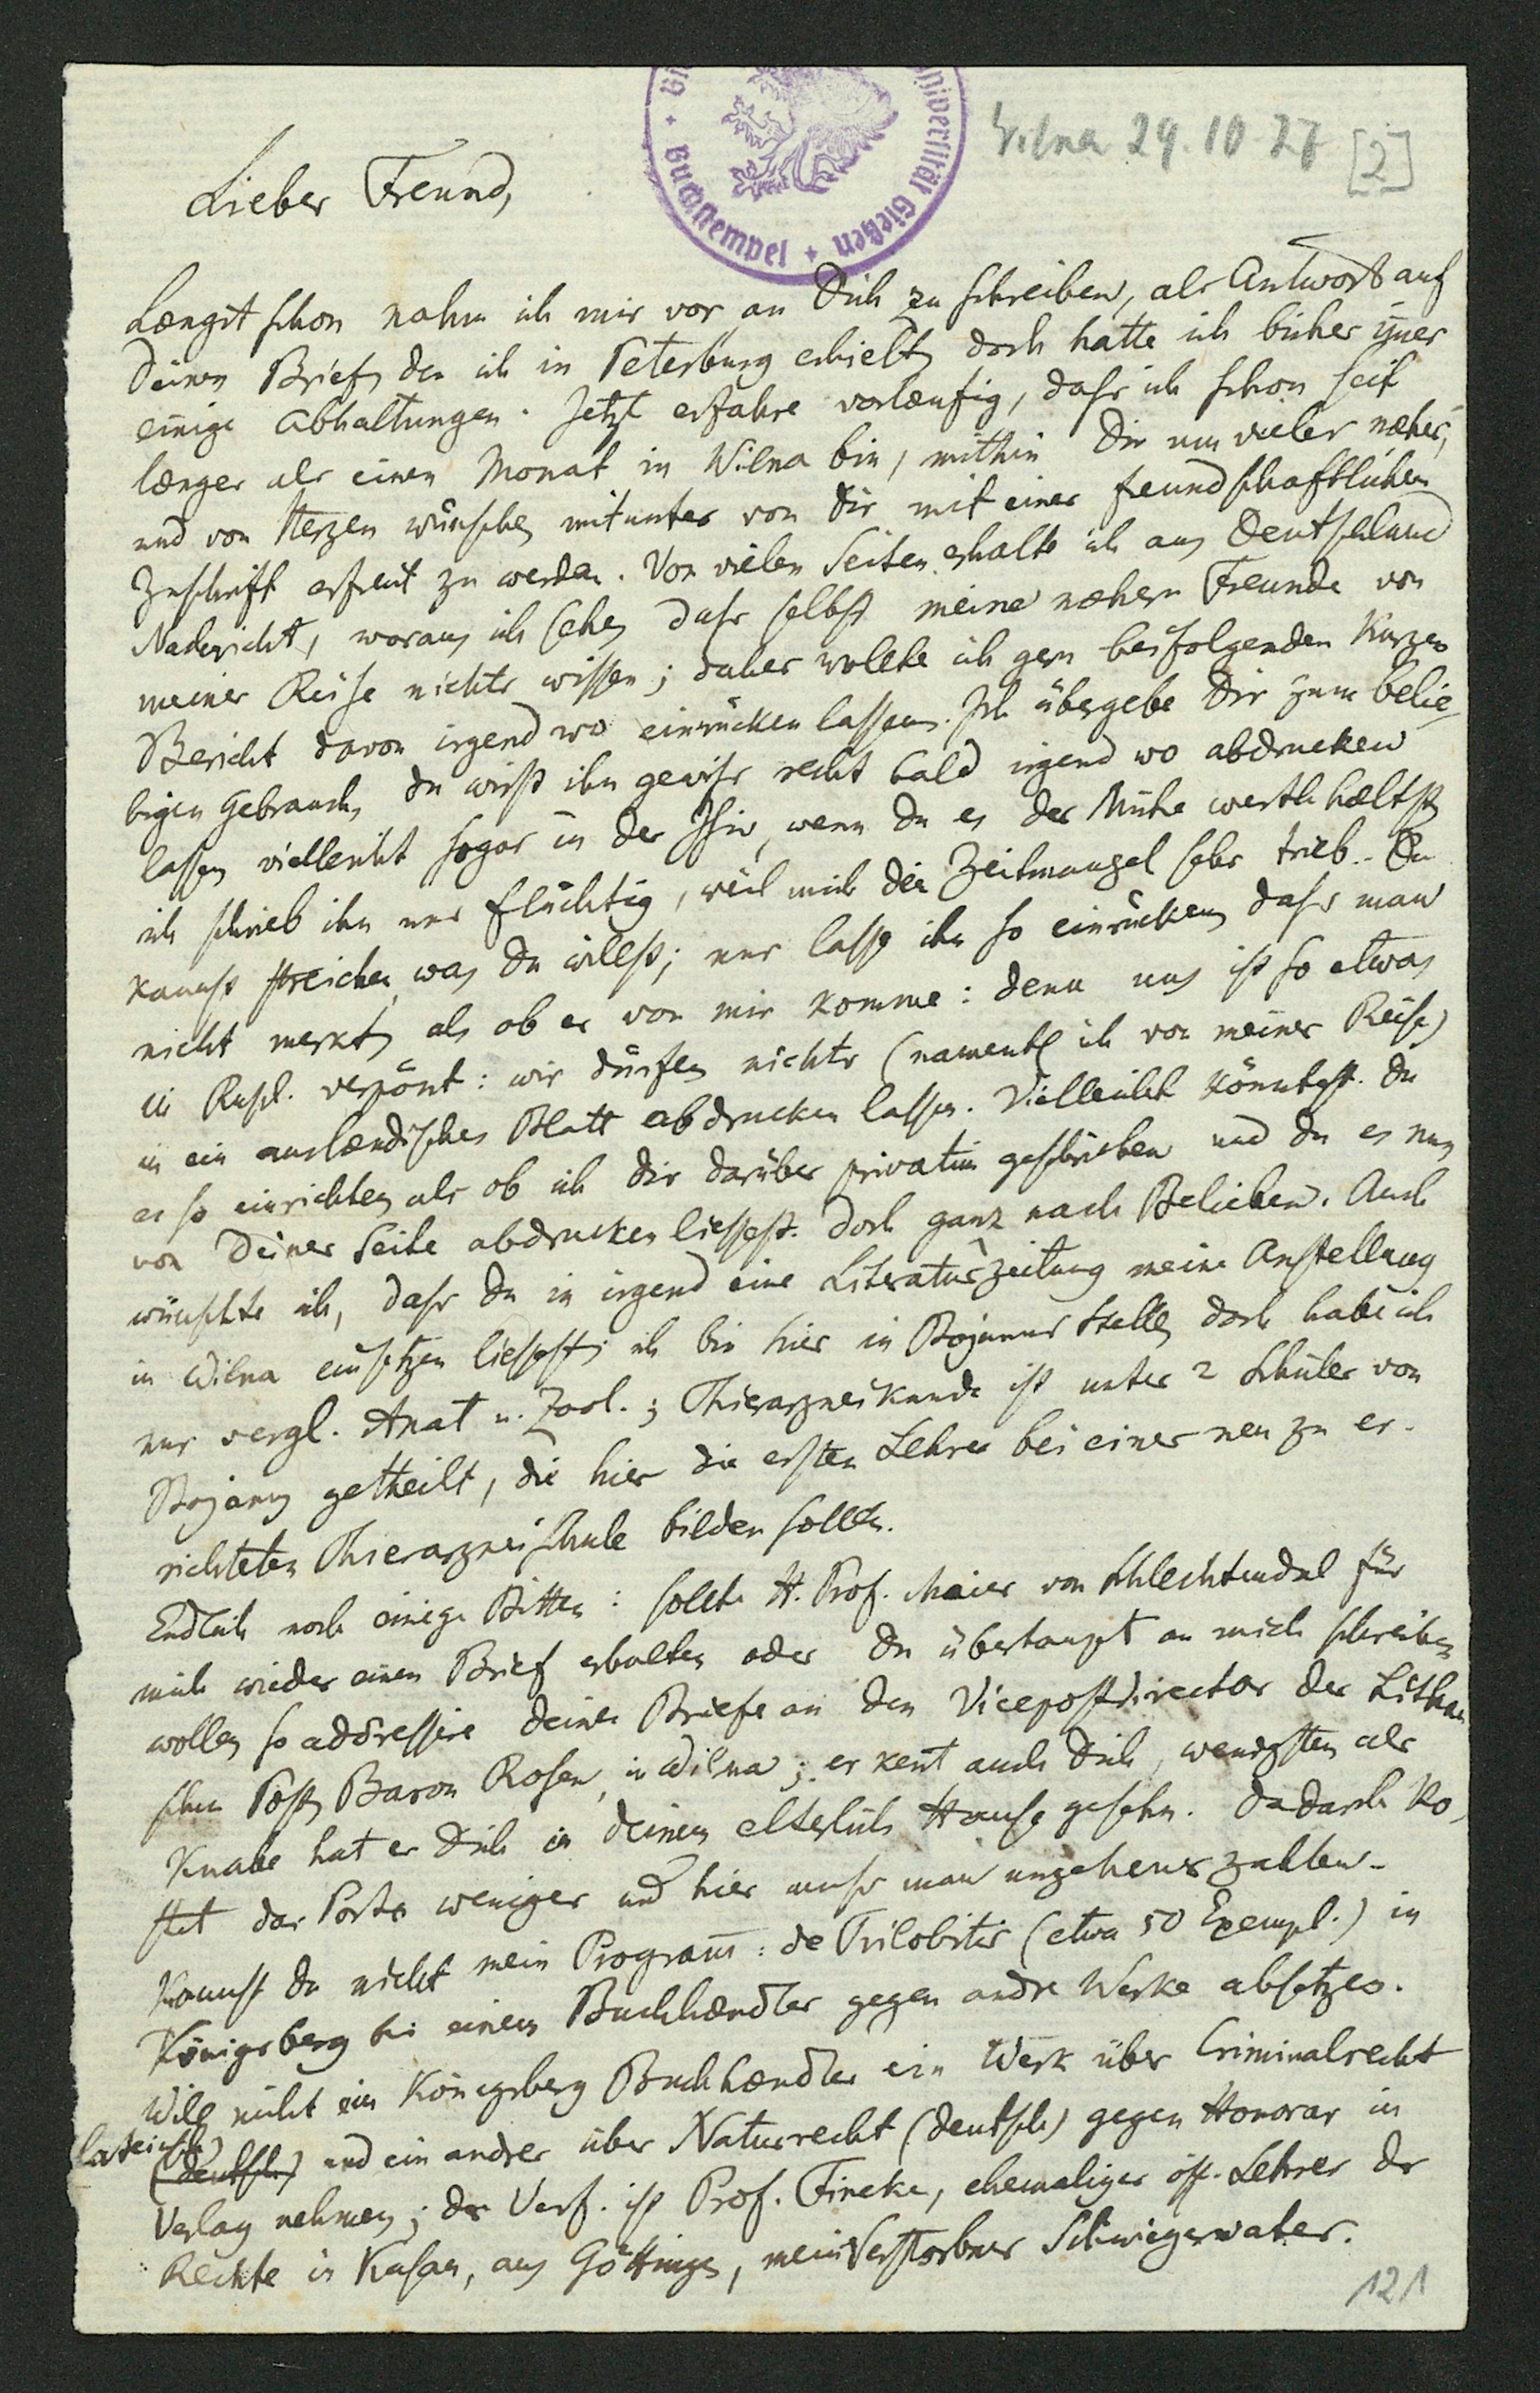 Wilna 29.10.27 [2]
Buchstempel + Universität Gießen +
Lieber Freund,
Længst schon nahm ich mir vor an Dich zu schreiben, als Antwort auf
Deinen Brief, den ich in Petersburg erhielt, doch hatte ich bisher im̅er
einige Abhaltungen. Jetzt erfahre vorlæufig, dass ich schon seit
længer als einen Monat in Wilna bin, mithin Dir um vieler næher,
und von Herzen wünsche, mitunter von Dir mit einer freundschaftlichen
Zuschrift erfreut zu werden. Von vielen Seiten erhalte ich aus Deutschland
Nachricht, woraus ich sehe, dass selbst meine næhern Freunde von
meiner Reise nichts wissen; daher wollte ich gern beifolgenden kurzen
Bericht davon irgend wo einrücken lassen. Ich übergebe Dir zum belie-
bigen Gebrauch, du wirst ihn gewiss recht bald irgend wo abdrucken
lassen, vielleicht sogar in der Isis, wenn du es der Mühe werth hæltst,
ich schrieb ihn nur flüchtig, weil mich der Zeitmangel sehr trieb. Du
kannst streichen, was du willst; nur lasse ihn so einrücken, dass man
nicht merkt, als ob er von mir komme: denn uns ist so etwas
in Russl. verpönt: wir dürfen nichts (namentlich von meiner Reise)
in ein auslændisches Blatt abdrucken lassen. Vielleicht könntest du
es so einrichten, als ob ich dir darüber privatim geschrieben und du es nun
von Deiner Seite abdrucken liessest. Doch ganz nach Belieben. Auch
wünschte ich, dass du in irgend eine Literaturzeitung meine Anstellung
in Wilna einsetzen liessest; ich bin hier in Bojanus Stelle, doch habe ich
nur vergl. Anat u. Zool.; Thierarzneikunde ist unter 2 Schüler von
Bojanus getheilt, die hier die ersten Lehrer bei einer neu zu er-
richteten Thierarzneischule bilden sollen.
Endlich noch einige Bitten: sollte H. Prof. Meier von Schlechtendal für
mich wieder einen Brief erhalten oder du überhaupt an mich schreiben
wollen, so addressire deine Briefe an den Vicepostdirector der Litthau
schen Post, Baron Rosen, in Wilna; er kent auch Dich, wenigsten als
Knabe hat er Dich in deinem elterlich Hause gesehn. Dadurch ko-
stet das Porto weniger und hier muss man ungeheuer zahlen.
Kannst du nicht mein Program̅: de Trilobitis (etwa 50 Exempl.) in
Königsberg bei einem Buchhændler gegen andre Werke absetzen.
Will nicht ein Königsberg Buchhændler ein Werk über Criminalrecht
lateinisch) (deutsch) und ein andres über Naturrecht (deutsch) gegen Honorar in
Verlag nehmen; der Verf. ist Prof. Fincke, ehemaliger öff. Lehrer der
Rechte in Kasan, aus Göttingen, mein verstorbner Schwiegervater.
121